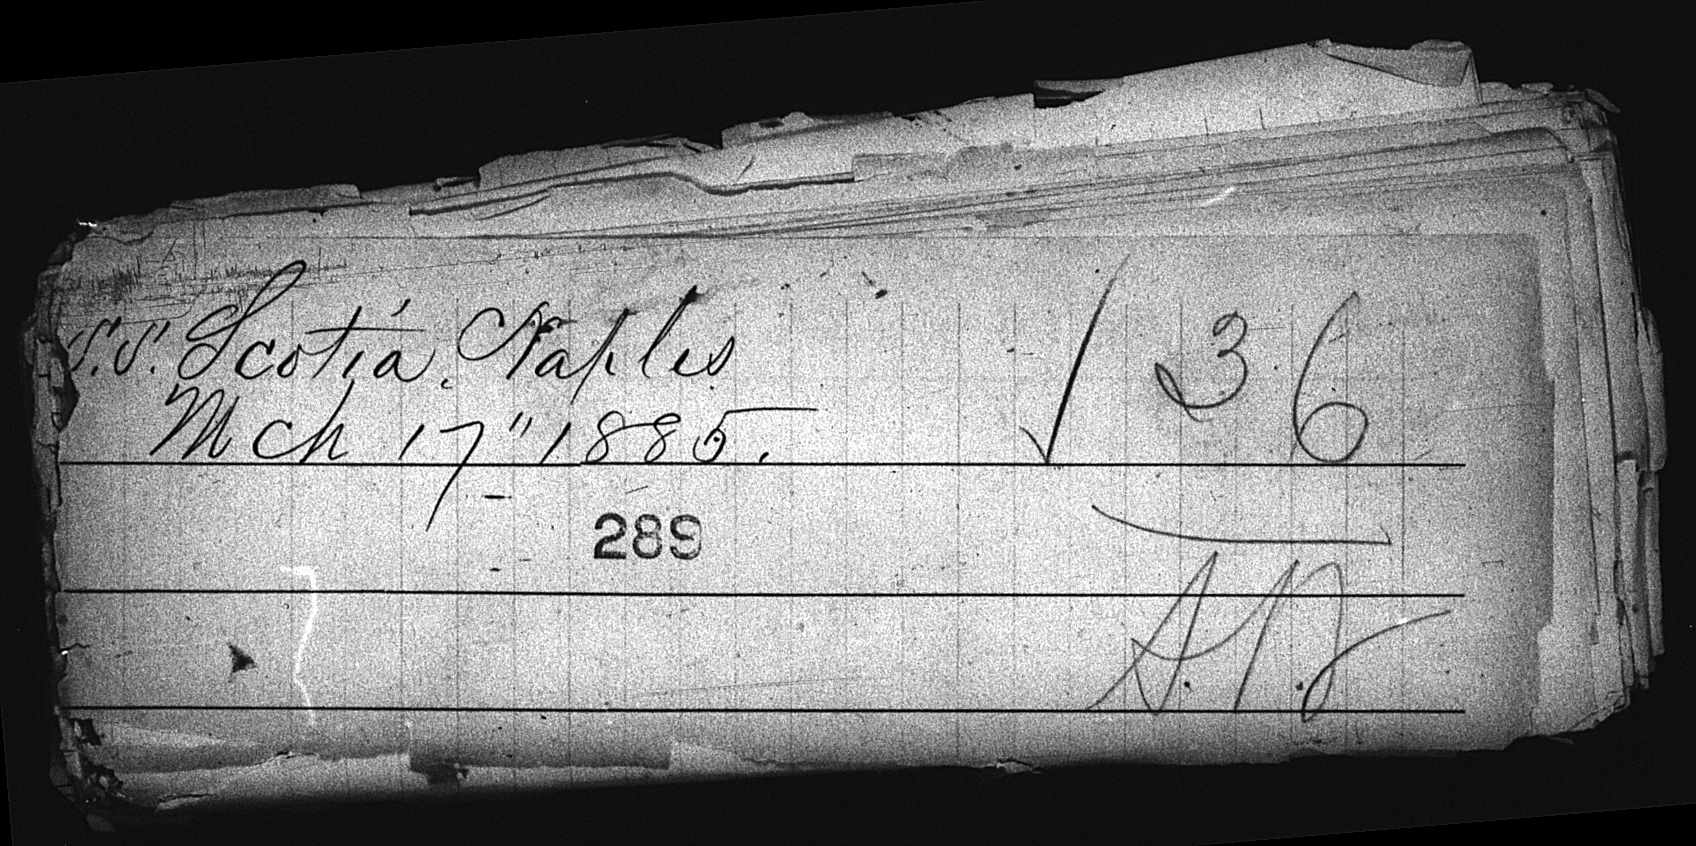 S.S. Scotia, Naples
Mch 17" 1885.
√ 36
289